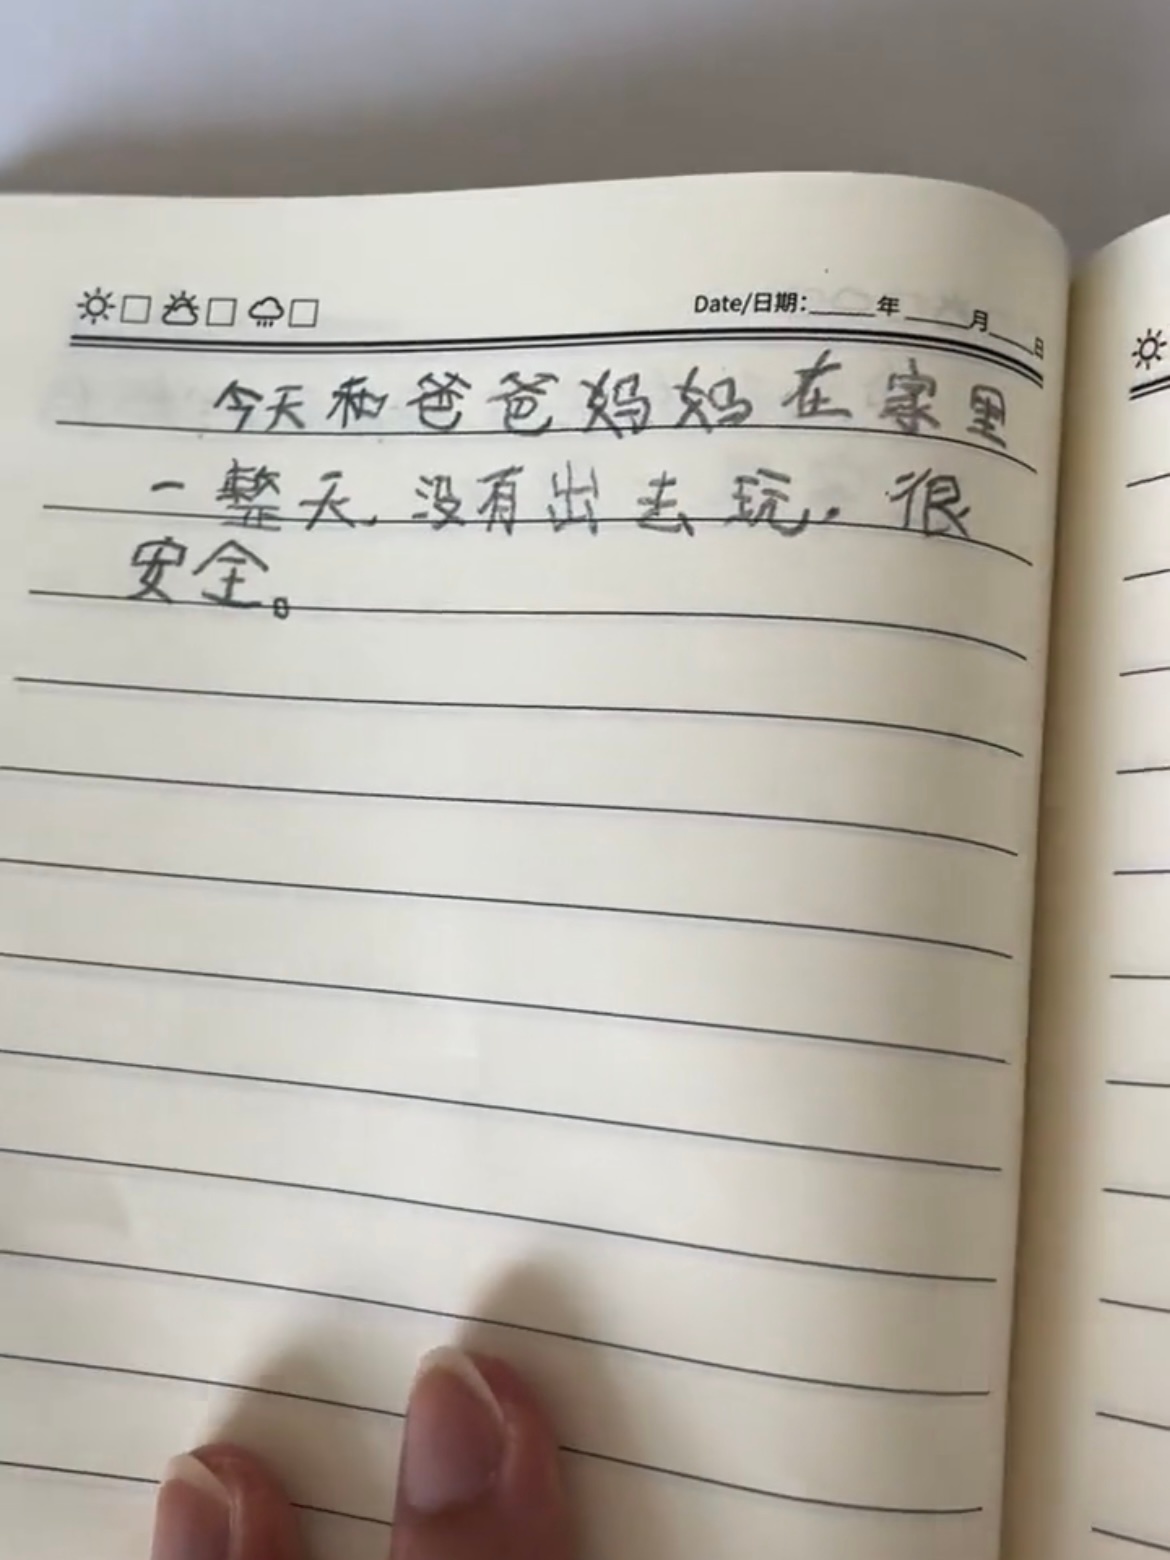 Date/日期:______年_____月____日
今天和爸爸妈妈在家里
一整天,没有出去玩,很
安全。